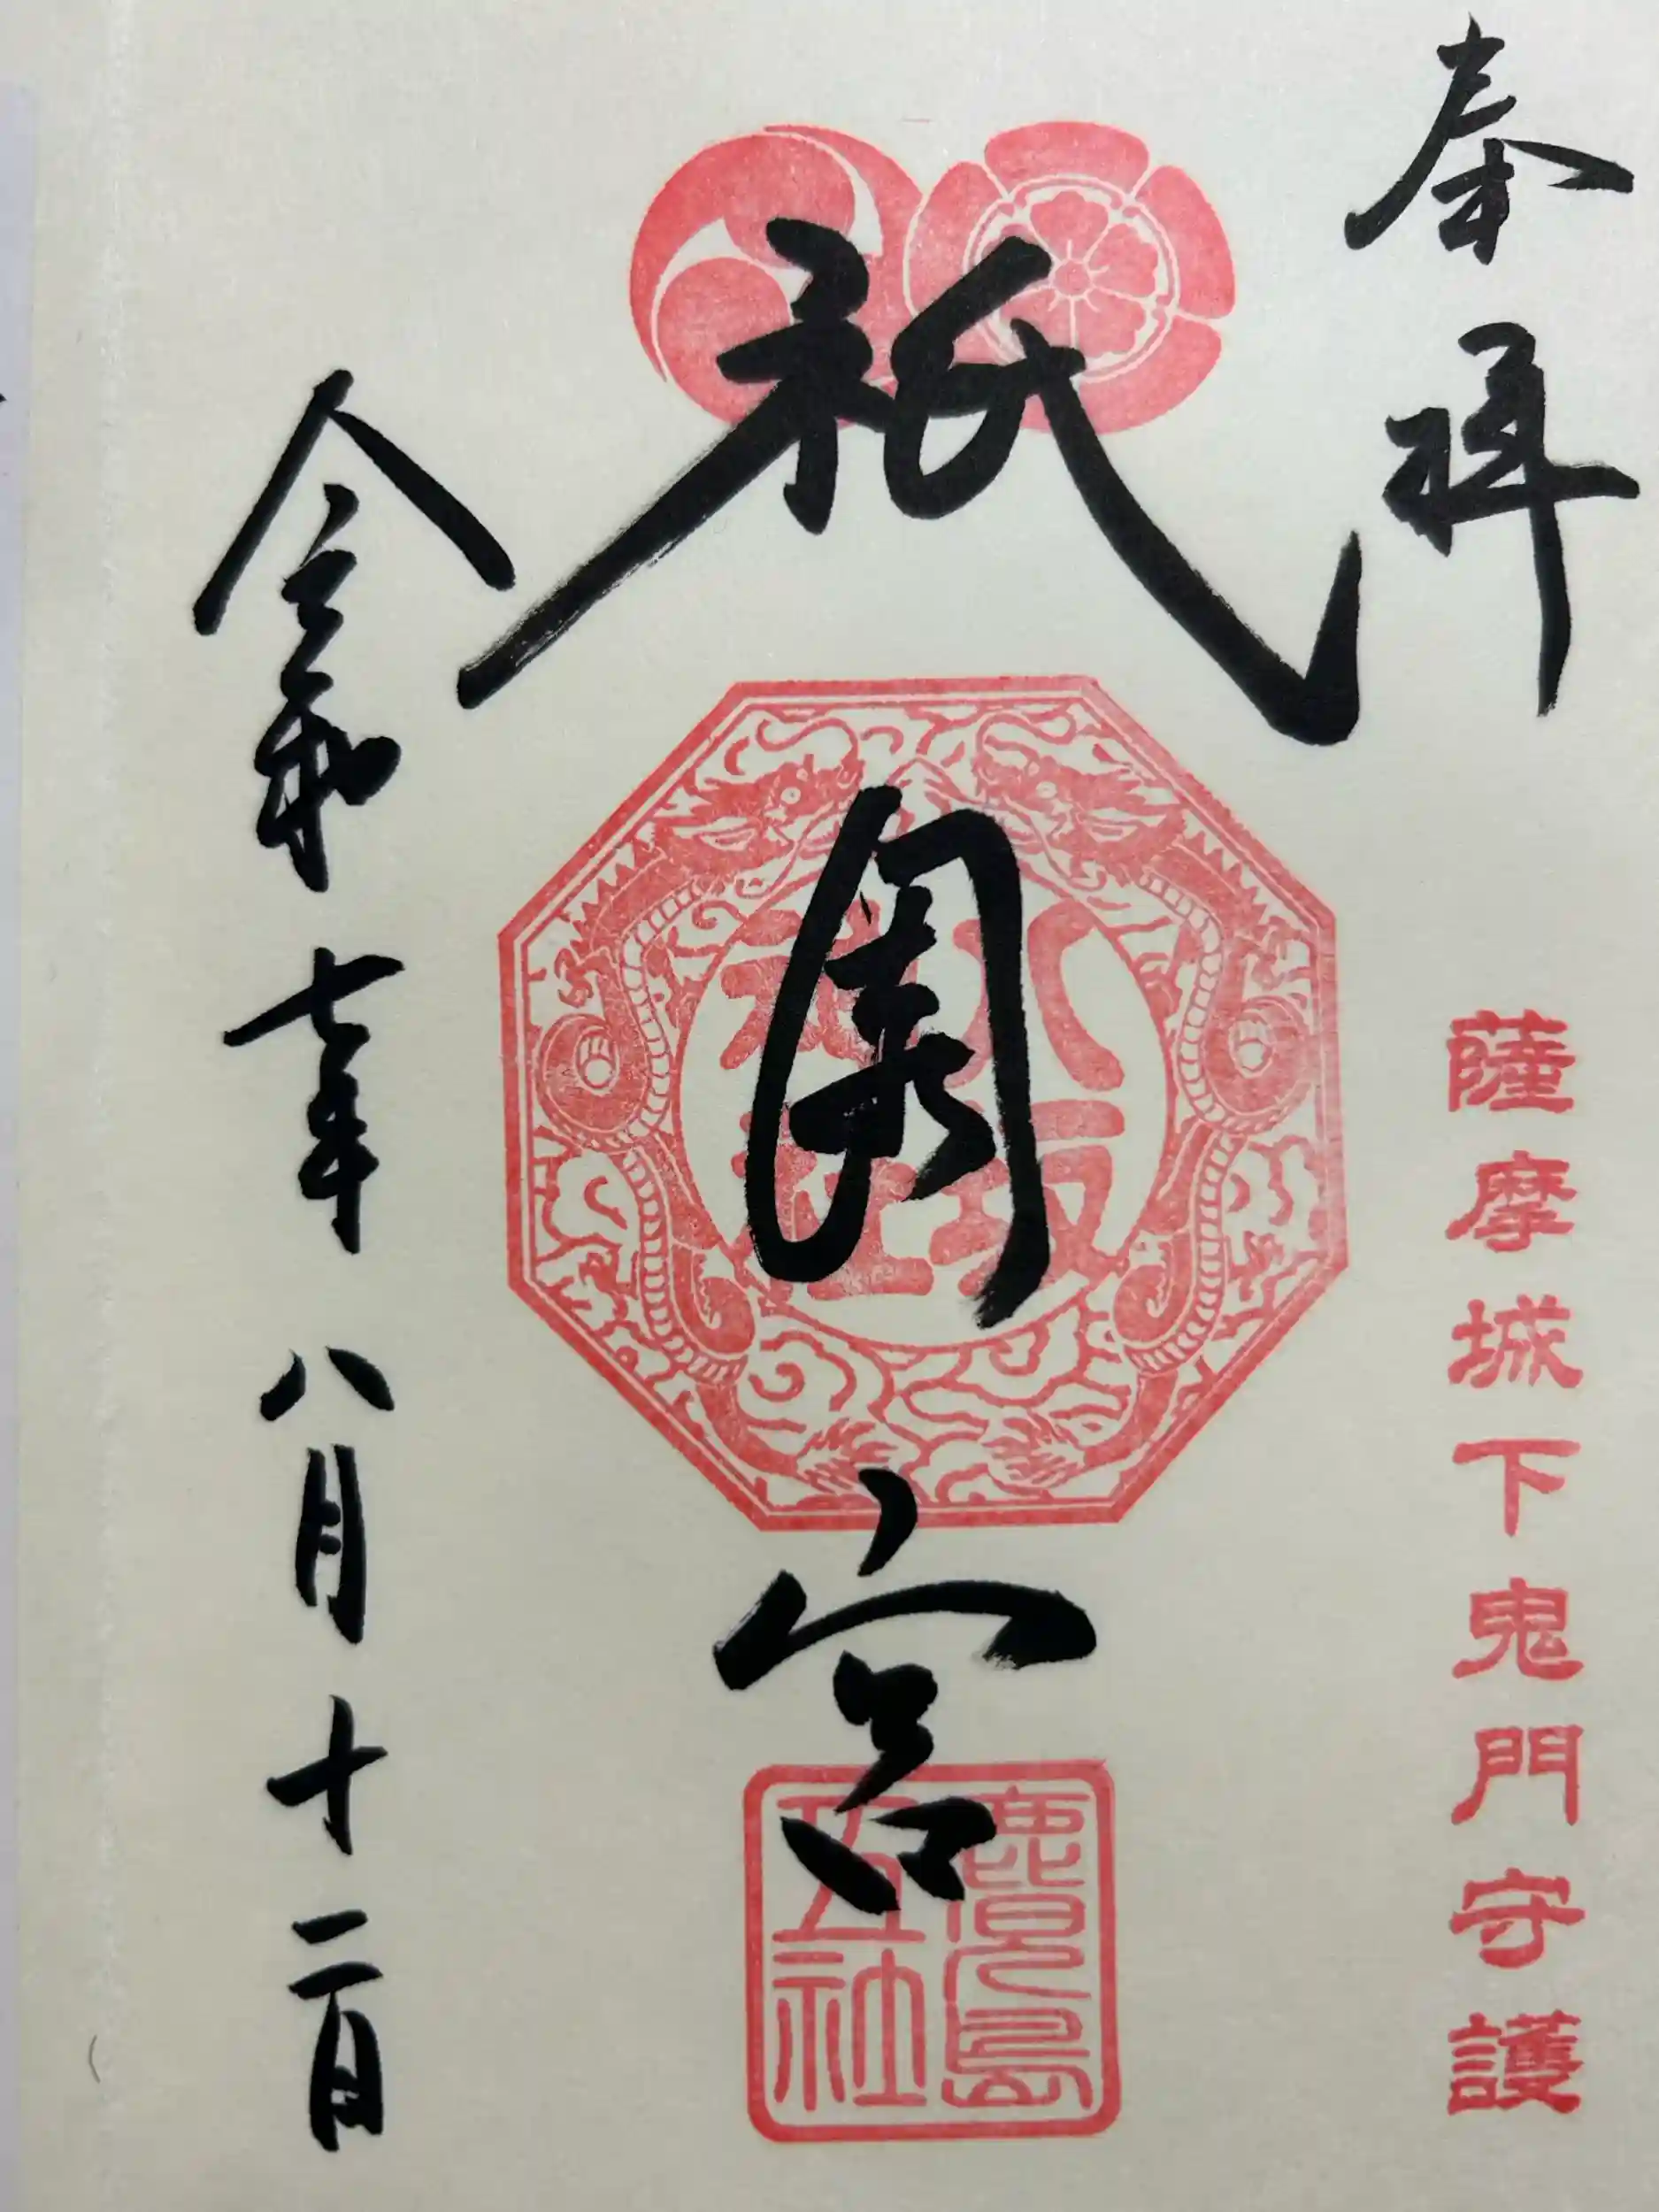 奉拝
薩摩城下鬼門守護
祇園宮
八坂神社
鹿児島五社
令和七年八月十二日